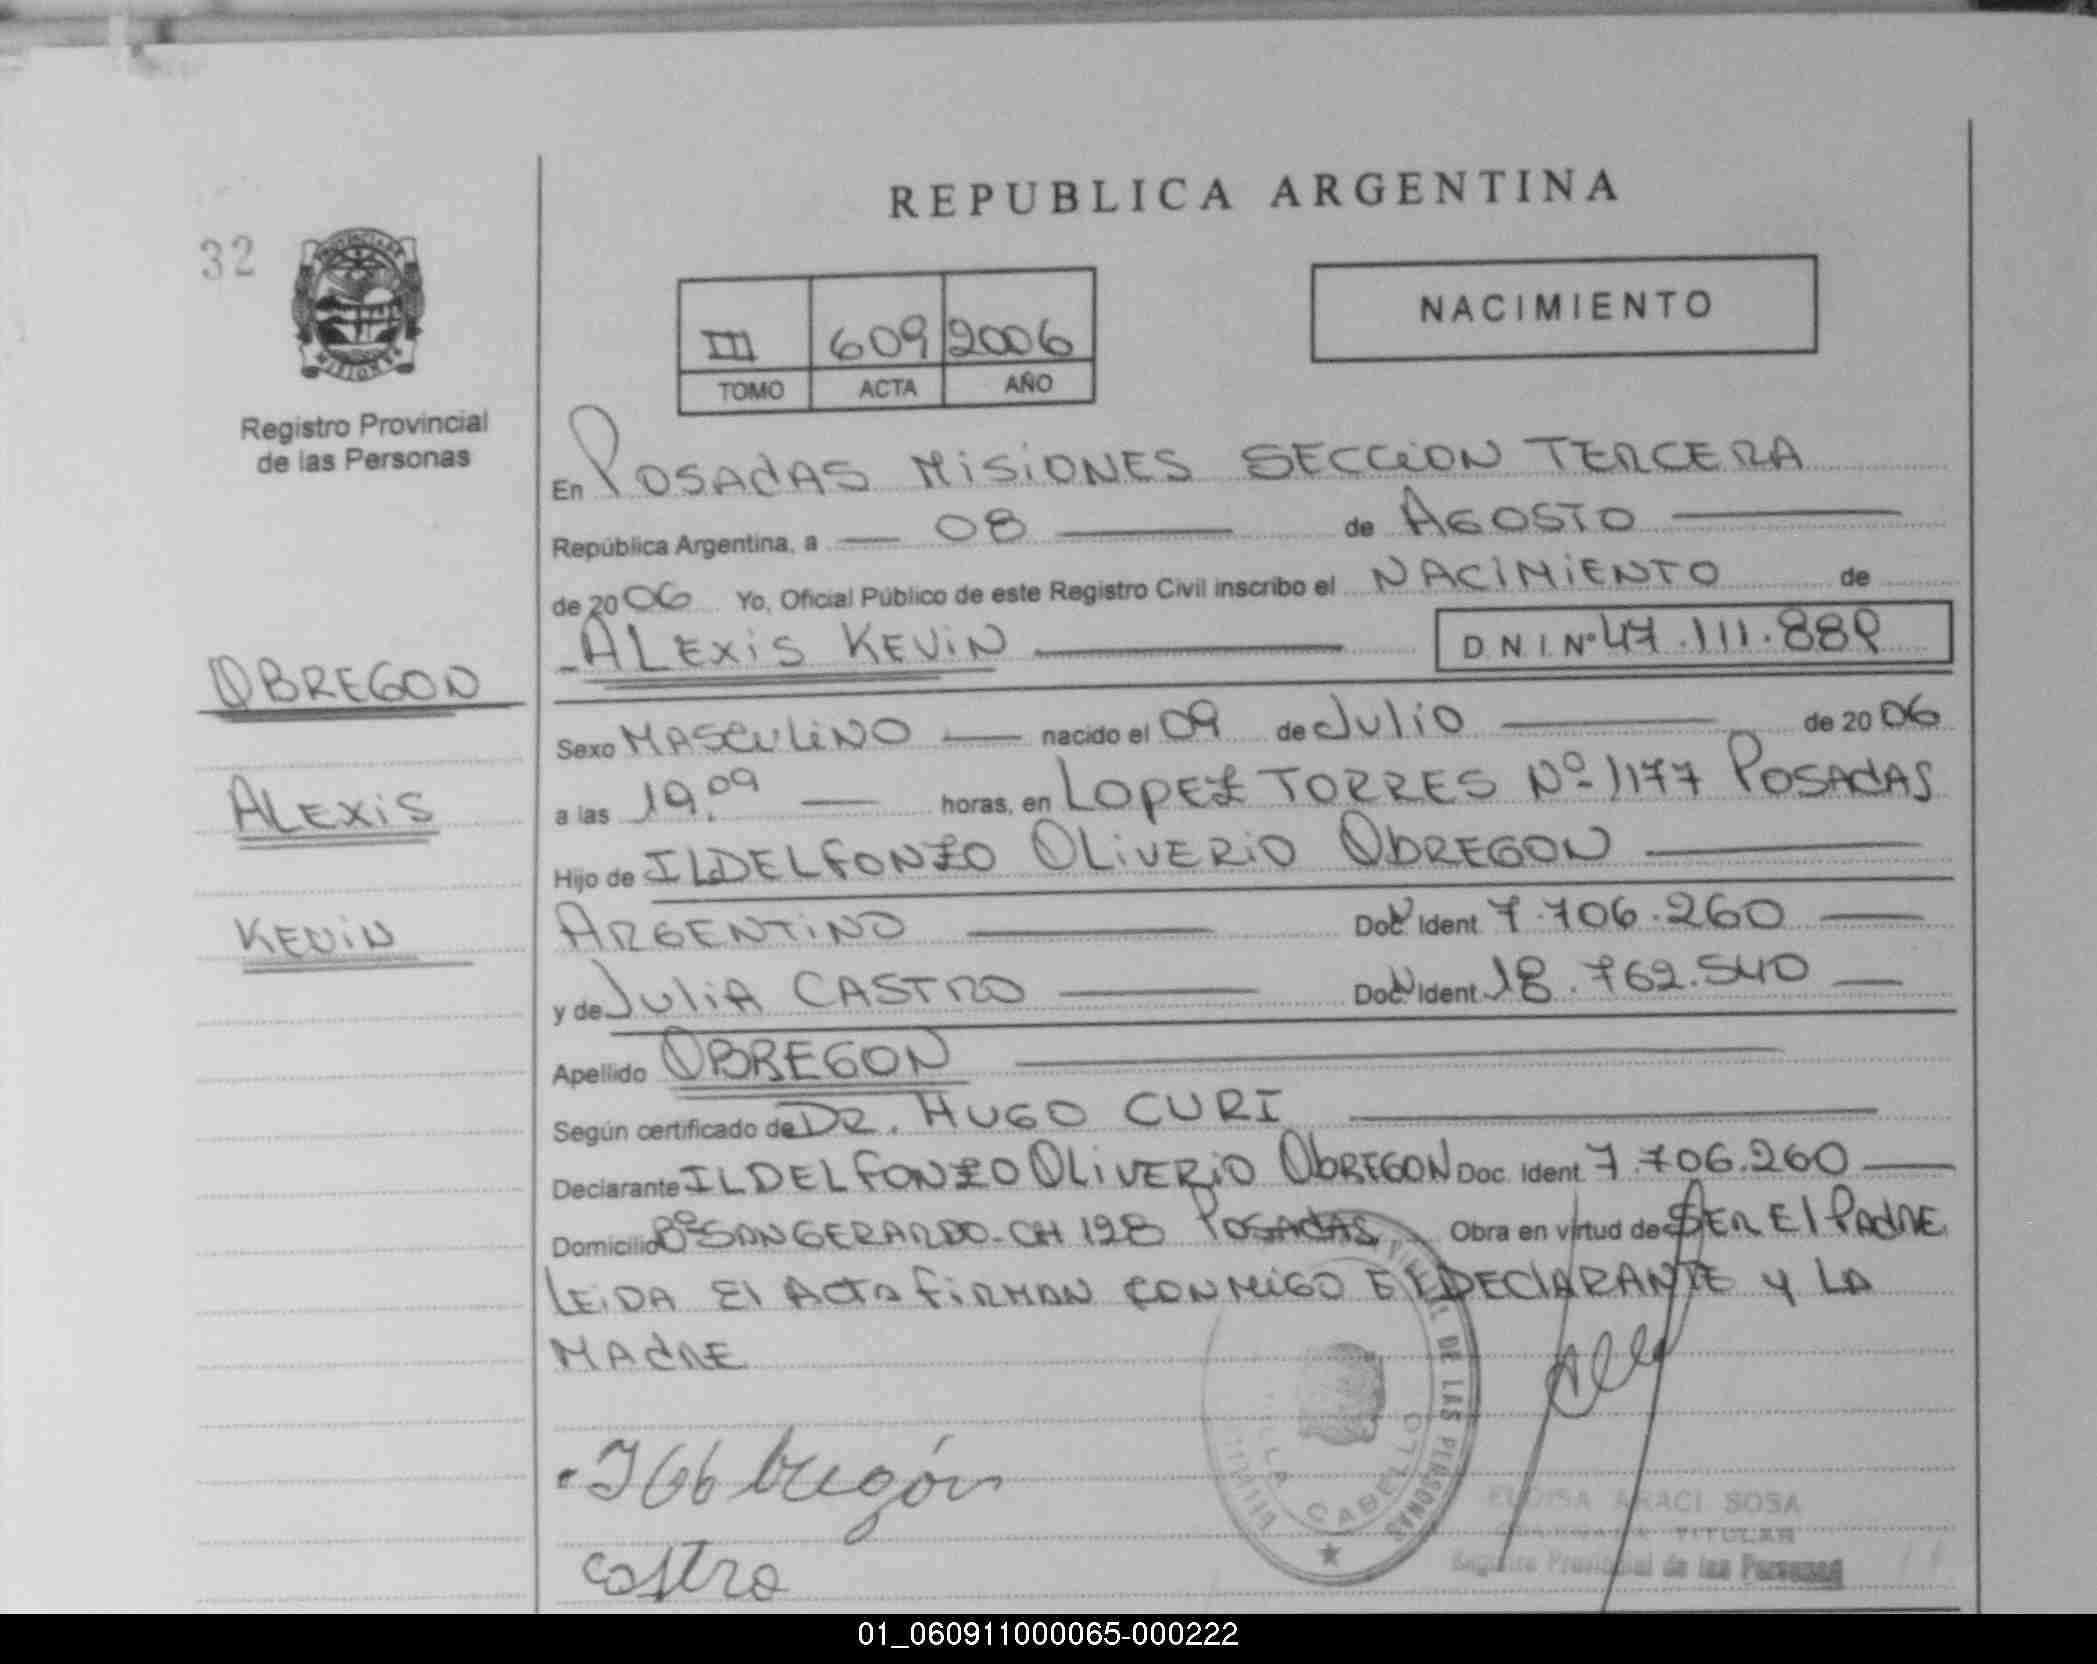 REPUBLICA ARGENTINA
32
NACIMIENTO
III 609 2006
TOMO ACTA AÑO
Registro Provincial
de las Personas
En POSADAS MISIONES SECCION TERCERA
República Argentina, a 08 de AGOSTO
de 2006 Yo, Oficial Público de este Registro Civil inscribo el NACIMIENTO de
ALEXIS KEVIN D.N.I. Nº 47.111.889
OBREGON
Sexo MASCULINO nacido el 09 de Julio de 2006
ALEXIS
a las 19.09 horas, en LOPEZ TORRES Nº 1177 POSADAS
Hijo de ILDELFONZO OLIVERIO OBREGON
KEVIN
ARGENTINO Doc. Ident 7.706.260
y de JULIA CASTRO Doc. Ident 18.762.540
Apellido OBREGON
Según certificado de DR. HUGO CURI
Declarante ILDELFONZO OLIVERIO OBREGON Doc. Ident. 7.706.260
Domicilio Bº SAN GERARDO-CH 128 POSADAS Obra en virtud de SER El PADRE
LEIDA El ACTA FIRMAN CONMIGO El DECLARANTE y LA
MADRE
DE LAS PERSONAS
VILLA CABELLO
Obregón
ELOISA ARACI SOSA
TITULAR
Registro Provincial de las Personas
Castro
01_060911000065-000222